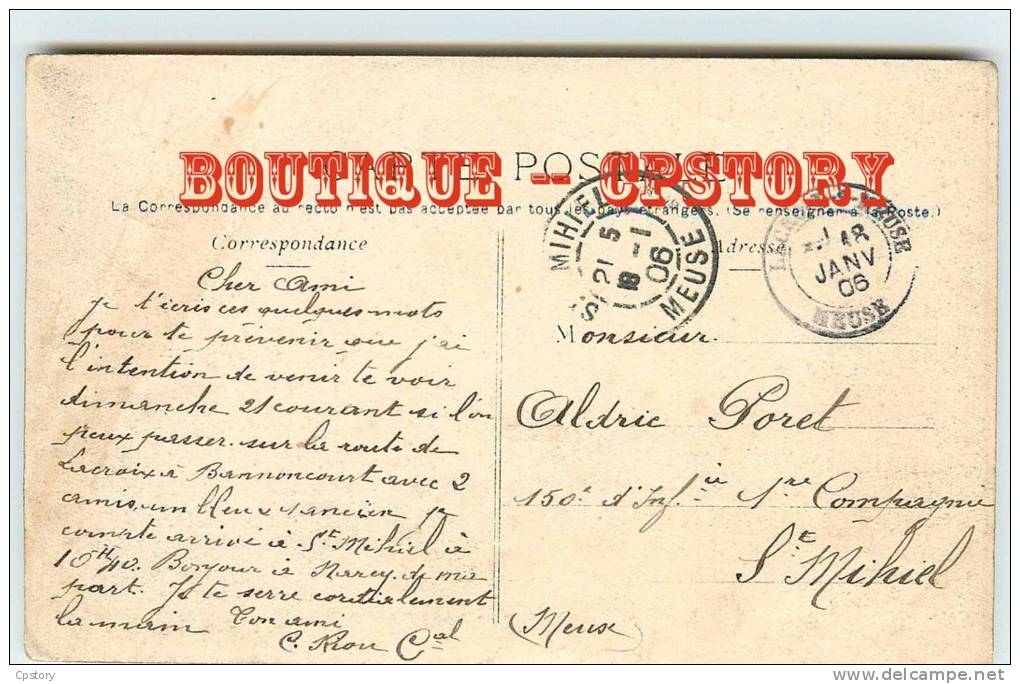 CARTE POSTALE
BOUTIQUE -- CPSTORY
La Correspondance au recto n'est pas acceptée par tous les pays étrangers. (Se renseigner à la Poste.)
Correspondance
Adresse
Cher Ami
je t'écris ces quelques mots
pour te prévenir que j'ai
l'intention de venir te voir
dimanche 21 courant si l'on
peux passer sur la route de
Lacroix à Bannoncourt avec 2
amis, un bleu 1 ancien je
compte arrivé à St Mihiel à
10H40. Bonjour à Narcy de ma
part. Je te serre cordialement
la main Ton ami
C. Cal
MIHIEL
21 5
18 -1
06
MEUSE
18
JANV
06
MEUSE
Monsieur.
Aldric Poret
150e d'Infie 1re Compagnie
St Mihiel
(Meuse)
Cpstory
www.delcampe.net